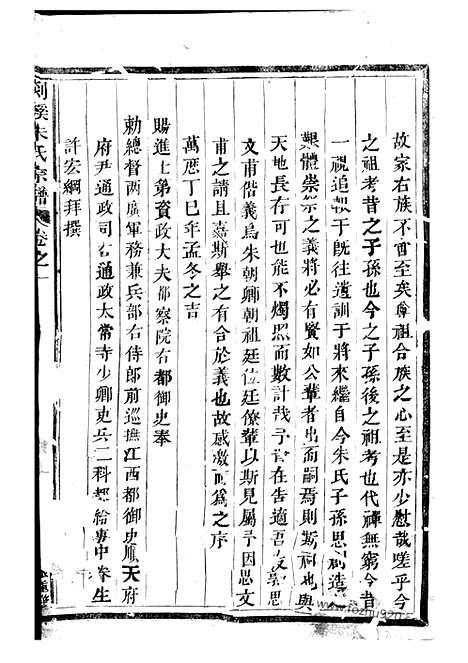 故家右族不啻至矣尊祖合族之心至是亦少慰哉嗟乎今
之祖考昔之子孫也今之子孫後之祖考也代禪無窮今昔
一視追報于既往遺訓于將來繼自今朱氏子孫思祠造
艱體崇祭之義將必有賢如公輩者出而嗣焉則斯祠也與
天地長存可也能不燭照而數計哉予官在告適吾友郭思
文甫偕義烏朱朝卿朝祖廷位廷僚輩以斯見屬予因思文
甫之請且嘉斯舉之有合於義也故感激而爲之序
萬曆丁巳年孟冬之吉
賜進士第資政大夫都察院右都御史奉
勅總督兩廣軍務兼兵部右侍郎前巡撫江西都御史順天府
府尹通政司右通政太常寺少卿吏兵二科都給事中眷生
許宏綱拜撰
剡溪朱氏宗譜 卷之一
www.fozhu920.com